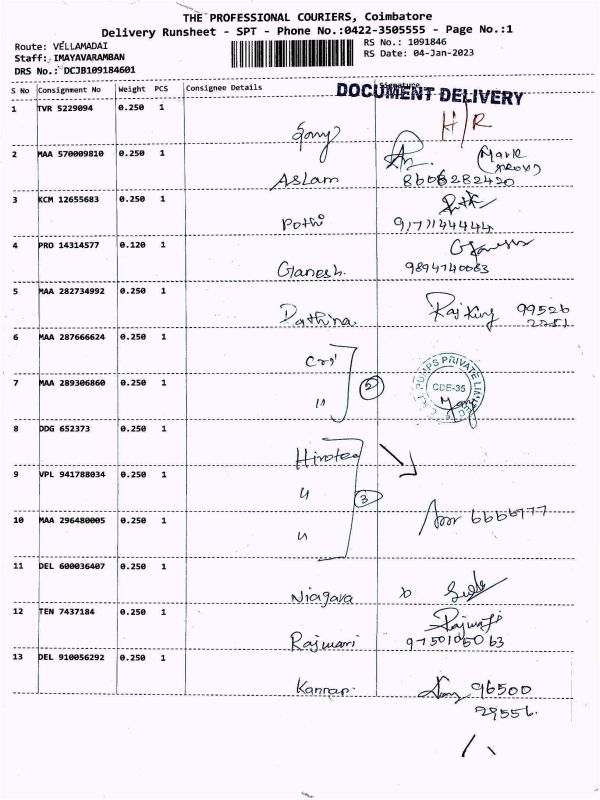 THE PROFESSIONAL COURIERS, Coimbatore
Delivery Runsheet - SPT - Phone No.:0422-3505555 - Page No.:1
Route: VELLAMADAI
RS No.: 1091846
Staff: IMAYAVARAMBAN
RS Date: 04-Jan-2023
DRS No.: DCJB109184601
S No Consignment No Weight PCS Consignee Details Signature
DOCUMENT DELIVERY
1 TVR 5229094 0.250 1
H/R
2 MAA 570009810 0.250 1
Aslam 8606282420
3 KCM 12655683 0.250 1
Pothi 9171144444
4 PRO 14314577 0.120 1
Ganesh. 9894740063
5 MAA 282734992 0.250 1
Dathina Raj King 99526
6 MAA 287666624 0.250 1
Cri
7 MAA 289306860 0.250 1
" 2
C.R.I PUMPS PRIVATE LIMITED
CDE-35
8 DDG 652373 0.250 1
Hirotec
9 VPL 941788034 0.250 1
" 3
10 MAA 296480005 0.250 1
" 6666777
11 DEL 600036407 0.250 1
Niagara
12 TEN 7437184 0.250 1
Rajmani 9750105063
13 DEL 910056292 0.250 1
Kannan. 96500
29556.